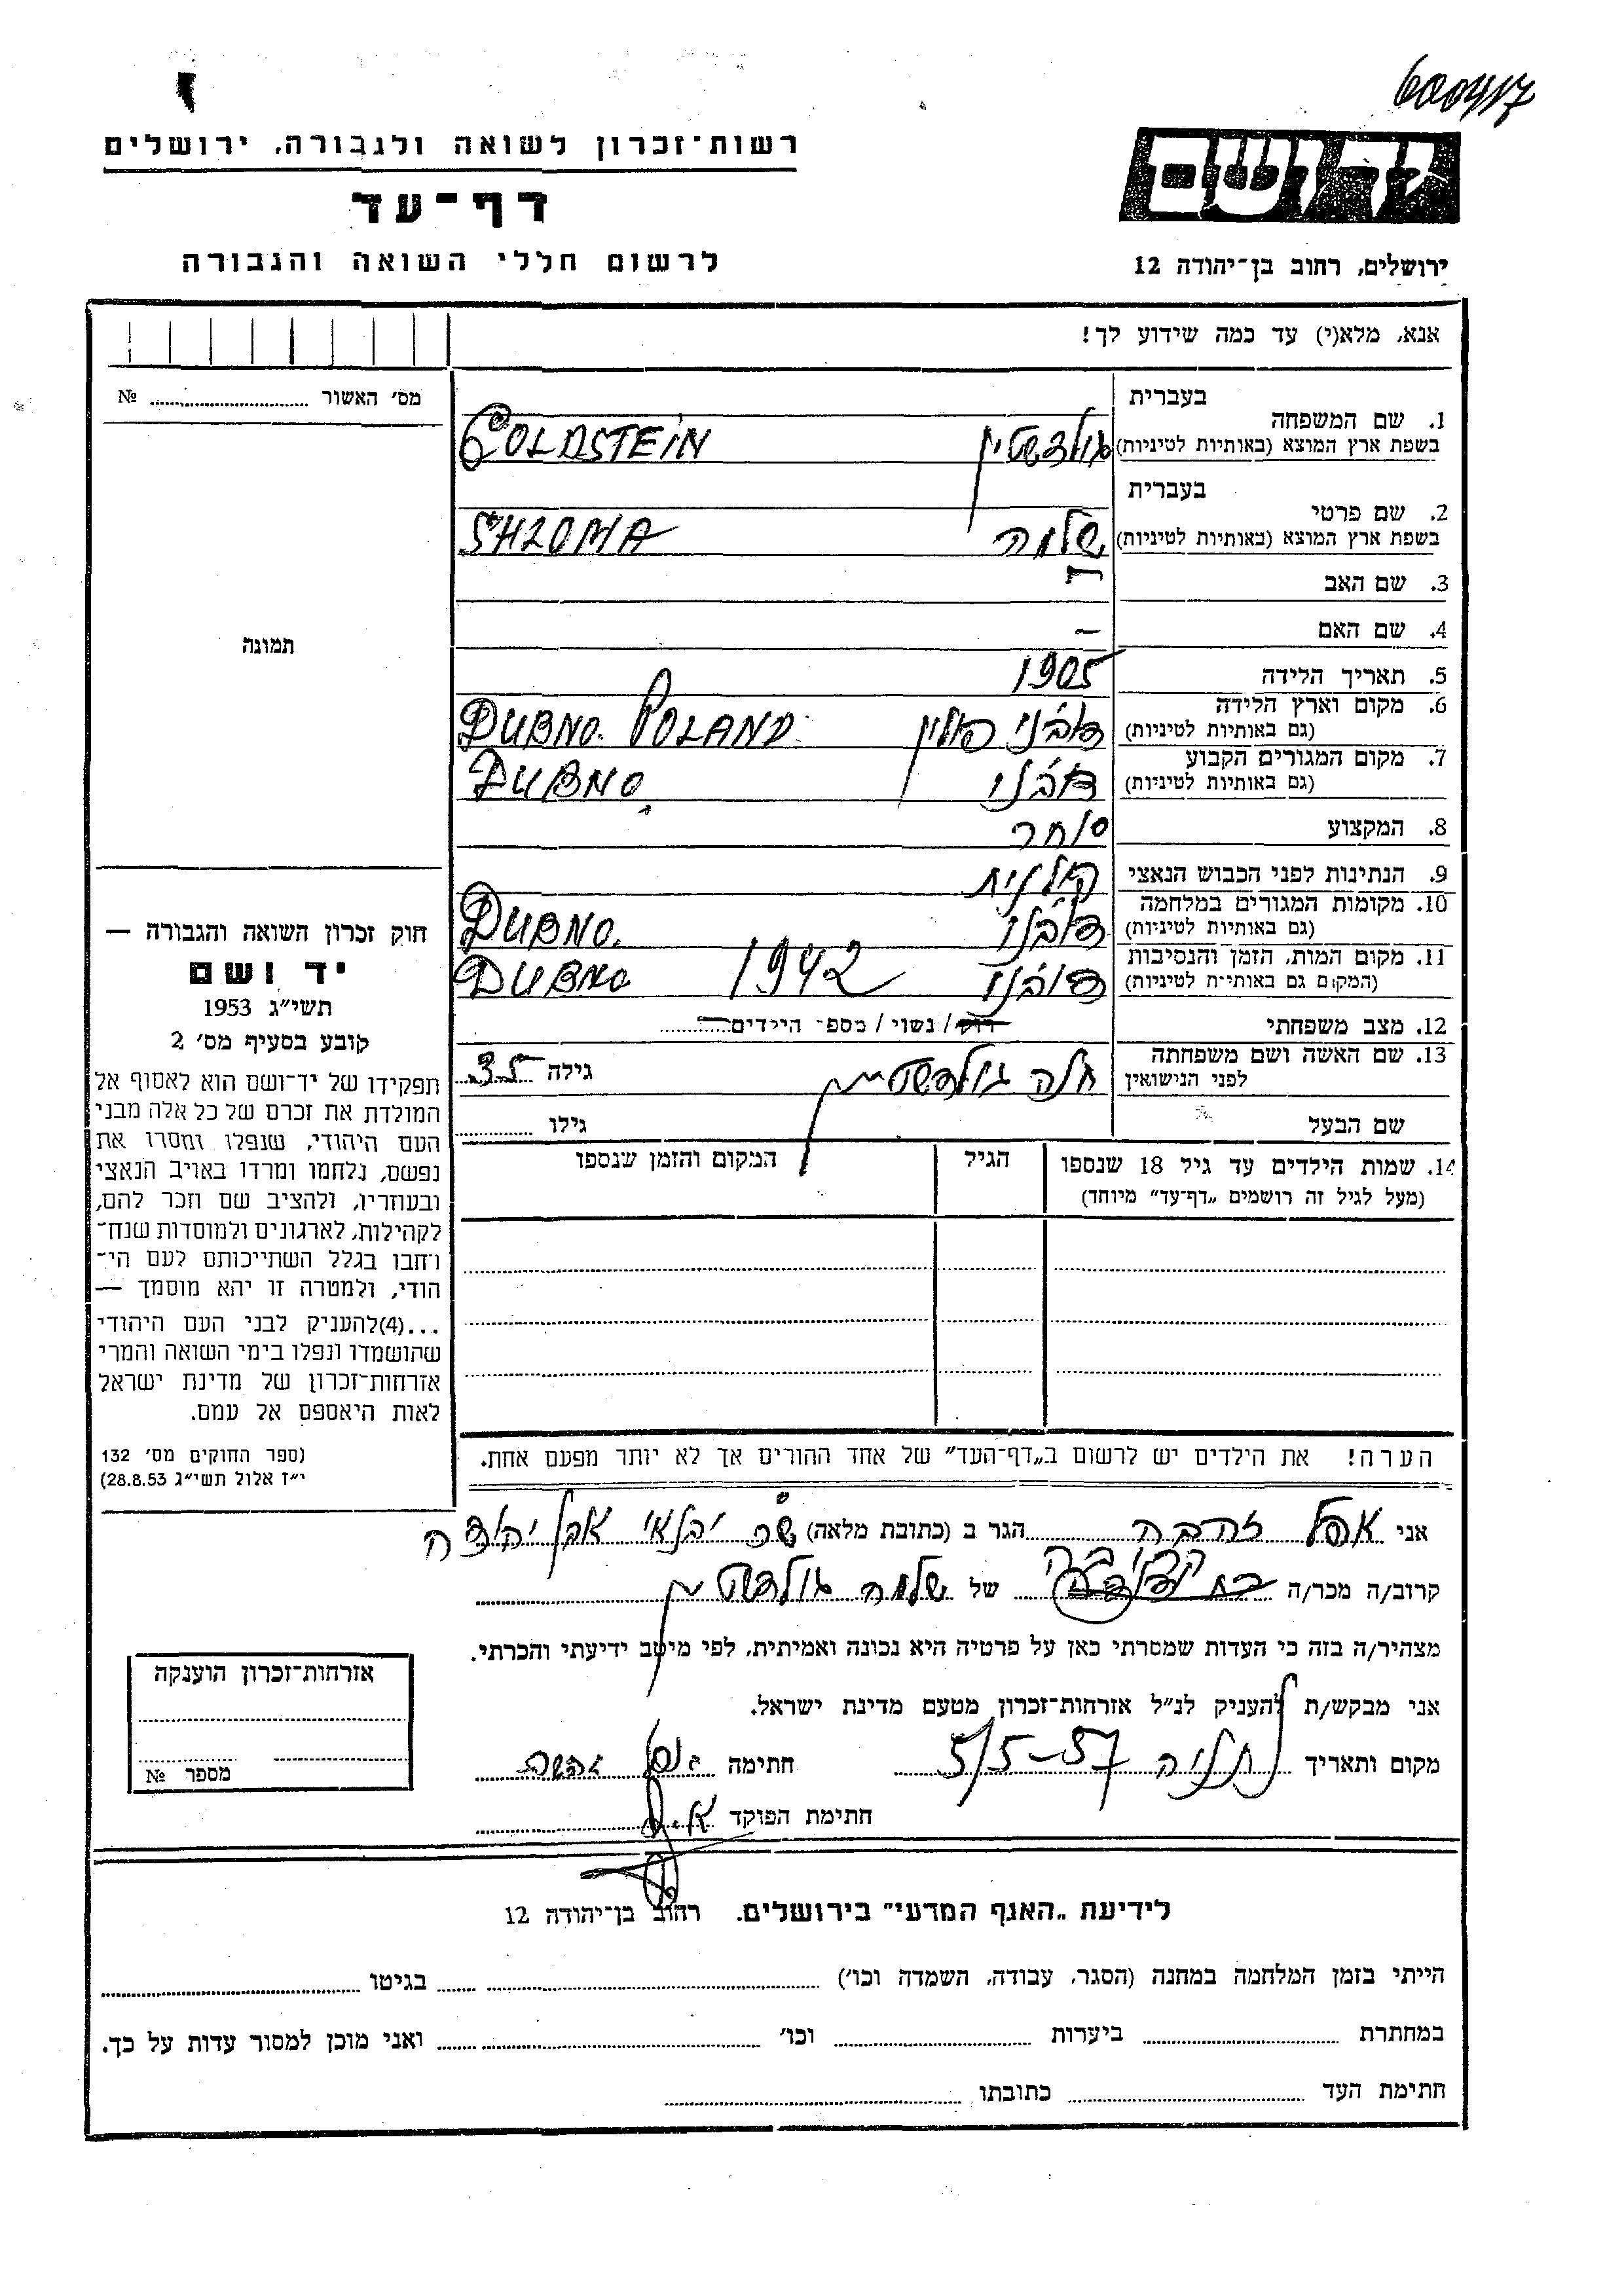 600417
יד ושם
ירושלים, רחוב בן־יהודה 12
רשות־זכרון לשואה ולגבורה, ירושלים
דף־עד
לרשום חללי השואה והגבורה
אנא, מלא(י) עד כמה שידוע לך!
מס׳ האשור № 
תמונה
בעברית
1. שם המשפחה גולדשטין GOLDSTEIN
בשפת ארץ המוצא (באותיות לטיניות)
בעברית
2. שם פרטי
בשפת ארץ המוצא (באותיות לטיניות) שלמה SHLOMA
3. שם האב
4. שם האם —
5. תאריך הלידה 1905
6. מקום וארץ הלידה
(גם באותיות לטיניות) דובנו פולין DUBNO. POLAND
7. מקום המגורים הקבוע
(גם באותיות לטיניות) דובנו DUBNO
8. המקצוע סוחר
9. הנתינות לפני הכבוש הנאצי פולנית
10. מקומות המגורים במלחמה
(גם באותיות לטיניות) דובנו DUBNO.
11. מקום המות, הזמן והנסיבות
(המקום גם באותיות לטיניות) דובנו 1942 DUBNO
12. מצב משפחתי רוק / נשוי / מספר הילדים
13. שם האשה ושם משפחתה
לפני הנישואין חנה גולדשטיין גילה 35
שם הבעל גילו
14. שמות הילדים עד גיל 18 שנספו הגיל המקום והזמן שנספו
(מעל לגיל זה רושמים „דף־עד״ מיוחד)
הערה! את הילדים יש לרשום ב„דף־העד״ של אחד ההורים אך לא יותר מפעם אחת.
חוק זכרון השואה והגבורה —
יד ושם
תשי״ג 1953
קובע בסעיף מס׳ 2
תפקידו של יד־ושם הוא לאסוף אל
המולדת את זכרם של כל אלה מבני
העם היהודי, שנפלו ומסרו את
נפשם, נלחמו ומרדו באויב הנאצי
ובעוזריו, ולהציב שם וזכר להם,
לקהילות, לארגונים ולמוסדות שנח־
רחבו בגלל השתייכותם לעם הי־
הודי, ולמטרה זו יהא מוסמך —
...(4)להעניק לבני העם היהודי
שהושמדו ונפלו בימי השואה והמרי
אזרחות־זכרון של מדינת ישראל
לאות היאספם אל עמם.
(ספר החוקים מס׳ 132
י״ז אלול תשי״ג 28.8.53)
אני זהבה הגר ב (כתובת מלאה) אבן יהודה
קרוב/ה מכר/ה קרובה של שלמה גולדשטיין
מצהיר/ה בזה כי העדות שמסרתי כאן על פרטיה היא נכונה ואמיתית, לפי מיטב ידיעתי והכרתי.
אני מבקש/ת להעניק לנ״ל אזרחות־זכרון מטעם מדינת ישראל.
מקום ותאריך נתניה 5/5-57 חתימה
חתימת הפוקד
אזרחות־זכרון הוענקה
מספר №
לידיעת „האגף המדעי״ בירושלים. רחוב בן־יהודה 12
הייתי בזמן המלחמה במחנה (הסגר, עבודה, השמדה וכו׳) בגיטו
במחתרת ביערות וכו׳ ואני מוכן למסור עדות על כך.
חתימת העד כתובתו